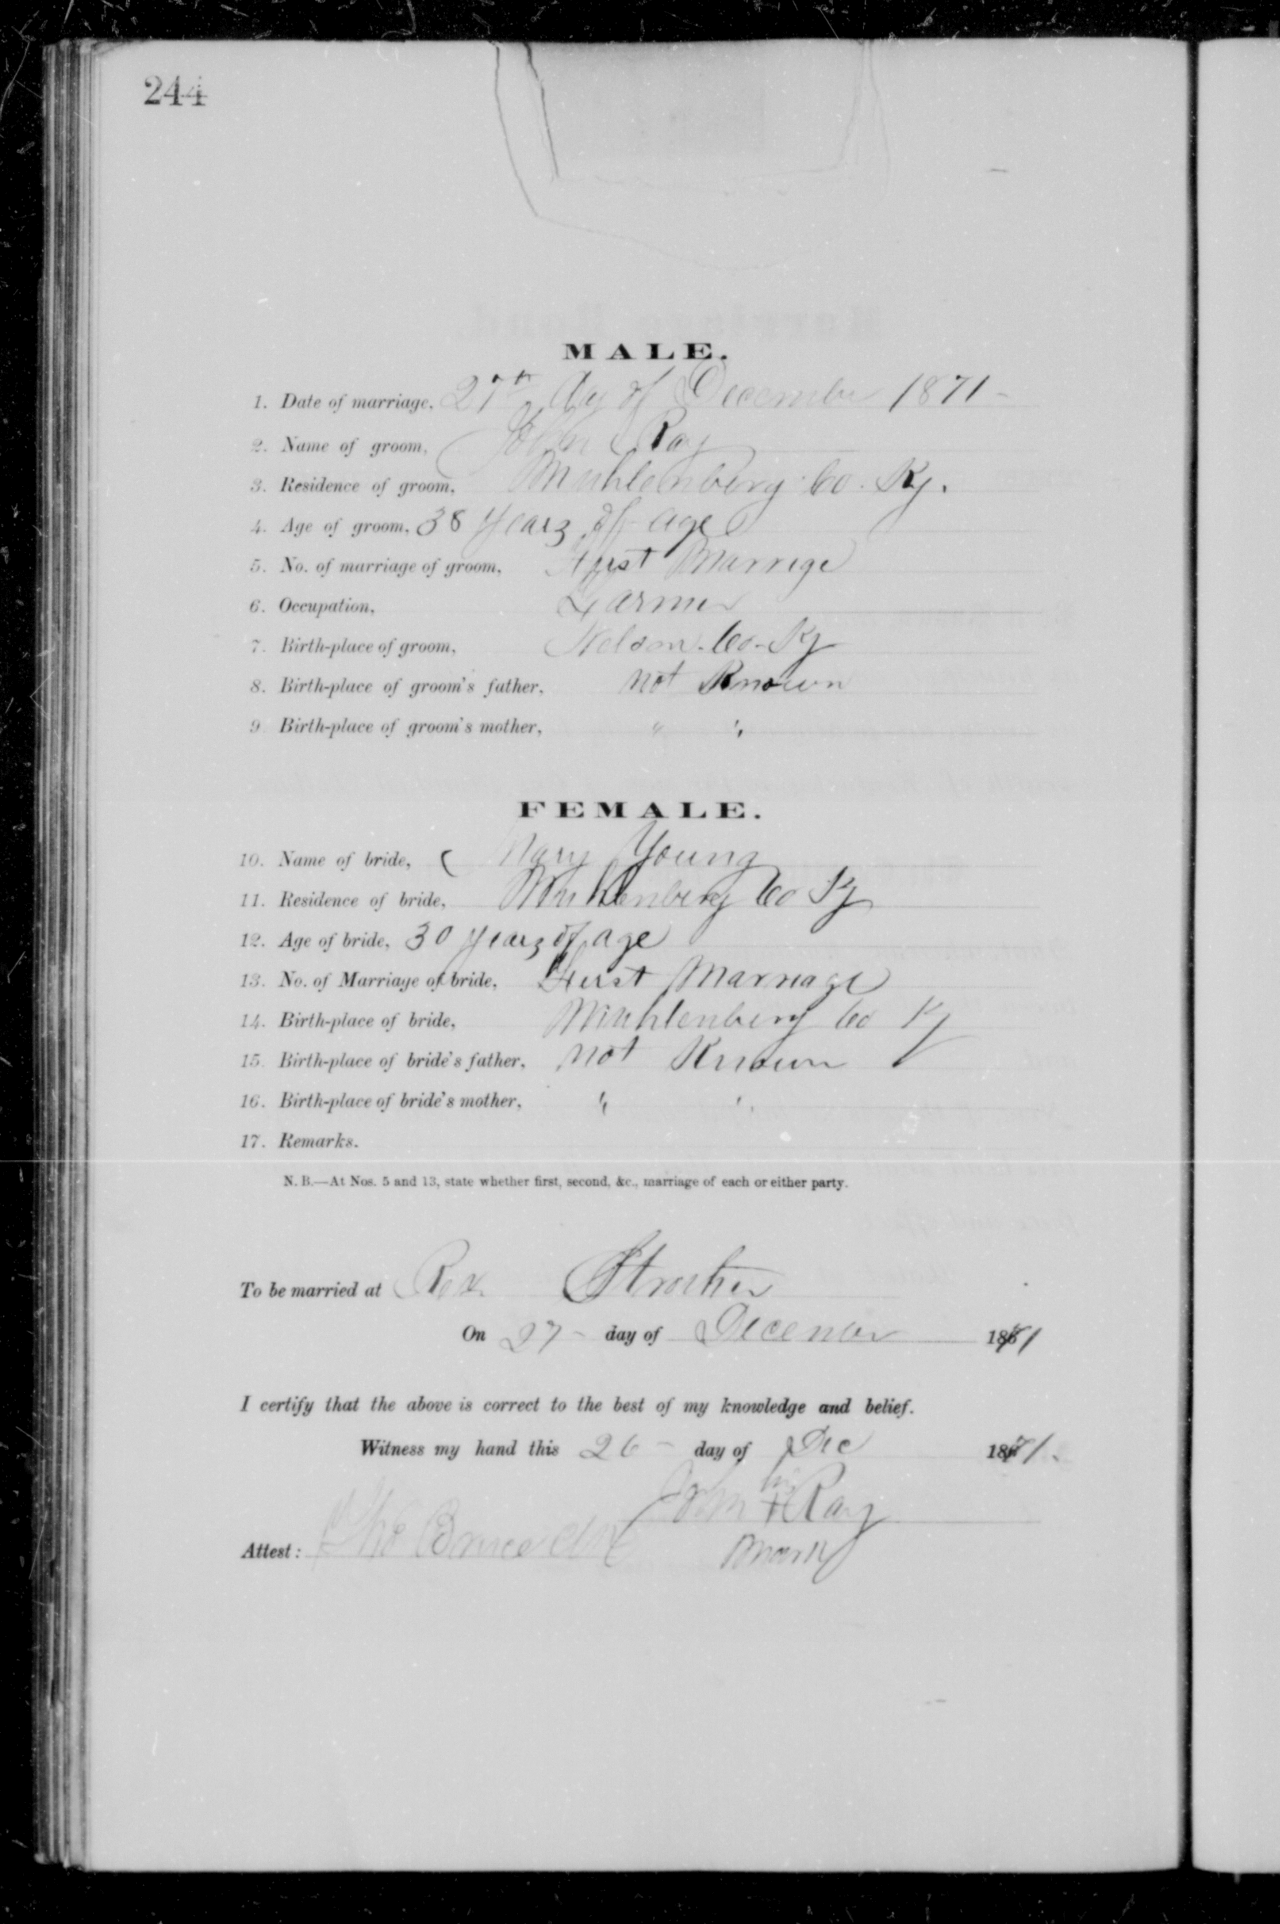 244
MALE.
1. Date of marriage, 27th day of December 1871 -
2. Name of groom, John Ray
3. Residence of groom, Muhlenberg Co. Ky.
4. Age of groom, 38 years of age
5. No. of marriage of groom, First Marrige
6. Occupation, Farmer
7. Birth-place of groom, Nelson Co - Ky
8. Birth-place of groom's father, not Known
9 Birth-place of groom's mother, " "
FEMALE.
10. Name of bride, Mary Young
11. Residence of bride, Muhlenberg Co Ky
12. Age of bride, 30 years of age
13. No. of Marriage of bride, First Marriage
14. Birth-place of bride, Muhlenberg Co Ky
15 Birth-place of bride's father, not Known
16. Birth-place of bride's mother, " "
17. Remarks.
N. B.—At Nos. 5 and 13, state whether first, second, &c., marriage of each or either party.
To be married at Strother
On 27 - day of December 1871
I certify that the above is correct to the best of my knowledge and belief.
Witness my hand this 26 - day of Dec 1871.
his
John + Ray
Attest: Tho Bruce Clk mark